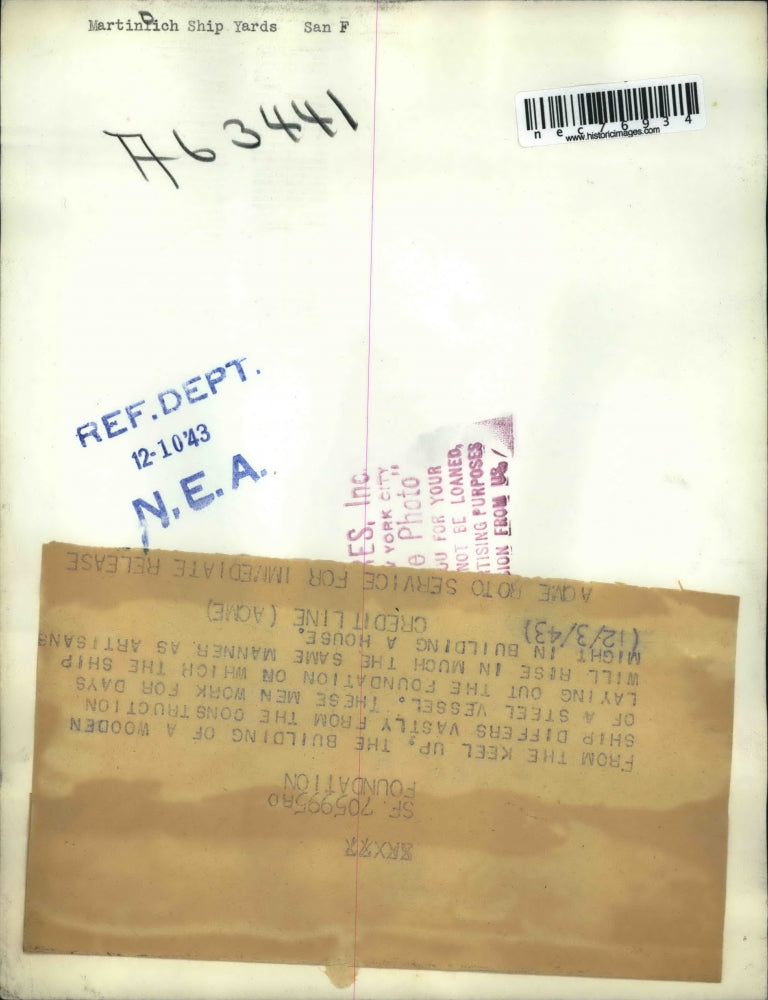 Martinnich Ship Yards San F
A63441
nec76934
www.historicimages.com
REF. DEPT.
12-10'43
N.E.A.
ES, Inc.
YORK CITY
Photo"
FOR YOUR
NOT BE LOANED,
TISING PURPOSES
ION FROM US
SF 705995RO
FOUNDATION
FROM THE KEEL UP. THE BUILDING OF A WOODEN
SHIP DIFFERS VASTLY FROM THE CONSTRUCTION
OF A STEEL VESSEL. THESE MEN WORK FOR DAYS
LAYING OUT THE FOUNDATION ON WHICH THE SHIP
WILL RISE IN MUCH THE SAME MANNER AS ARTISANS
MIGHT IN BUILDING A HOUSE.
(12/3/43) CREDIT LINE (ACME)
ACME ROTO SERVICE FOR IMMEDIATE RELEASE